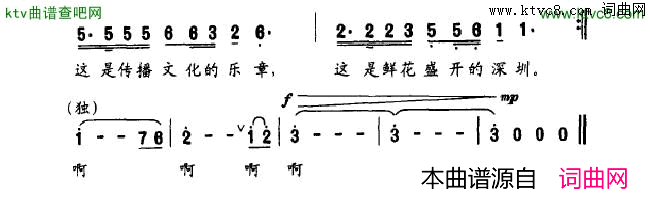 ktv曲谱查吧网
www.ktvc8.com 词曲网
5· 5 5 5 6 6 3 2 6· | 2· 2 2 3 5 5 6 1 1· :||
这是传播文化的乐章, 这是鲜花盛开的深圳。
(独) f mp
1 - - 7 6 | 2 - - ∨ 1 2 | 3 - - - | 3 - - - | 3 0 0 0 ||
啊 啊 啊 啊
本曲谱源自 词曲网